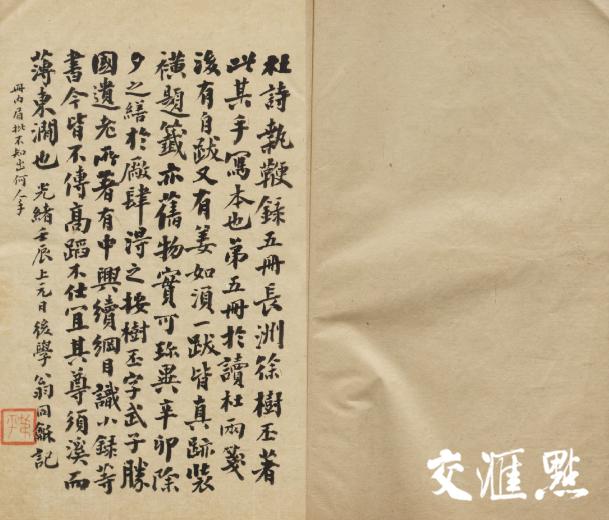 杜詩執鞭錄五冊長洲徐樹丕著
此其手寫本也第五冊於讀杜兩箋
後有自跋又有姜如須一跋皆真跡裝
潢題籤亦舊物實可珍異辛卯除
夕之繕於廠肆得之按樹丕字武子勝
國遺老所著有中興續綱目識小錄等
書今皆不傳高蹈不仕宜其尊須溪而
薄東澗也 光緒壬辰上元日後學翁同龢記
冊内眉批不知出何人手
交匯點